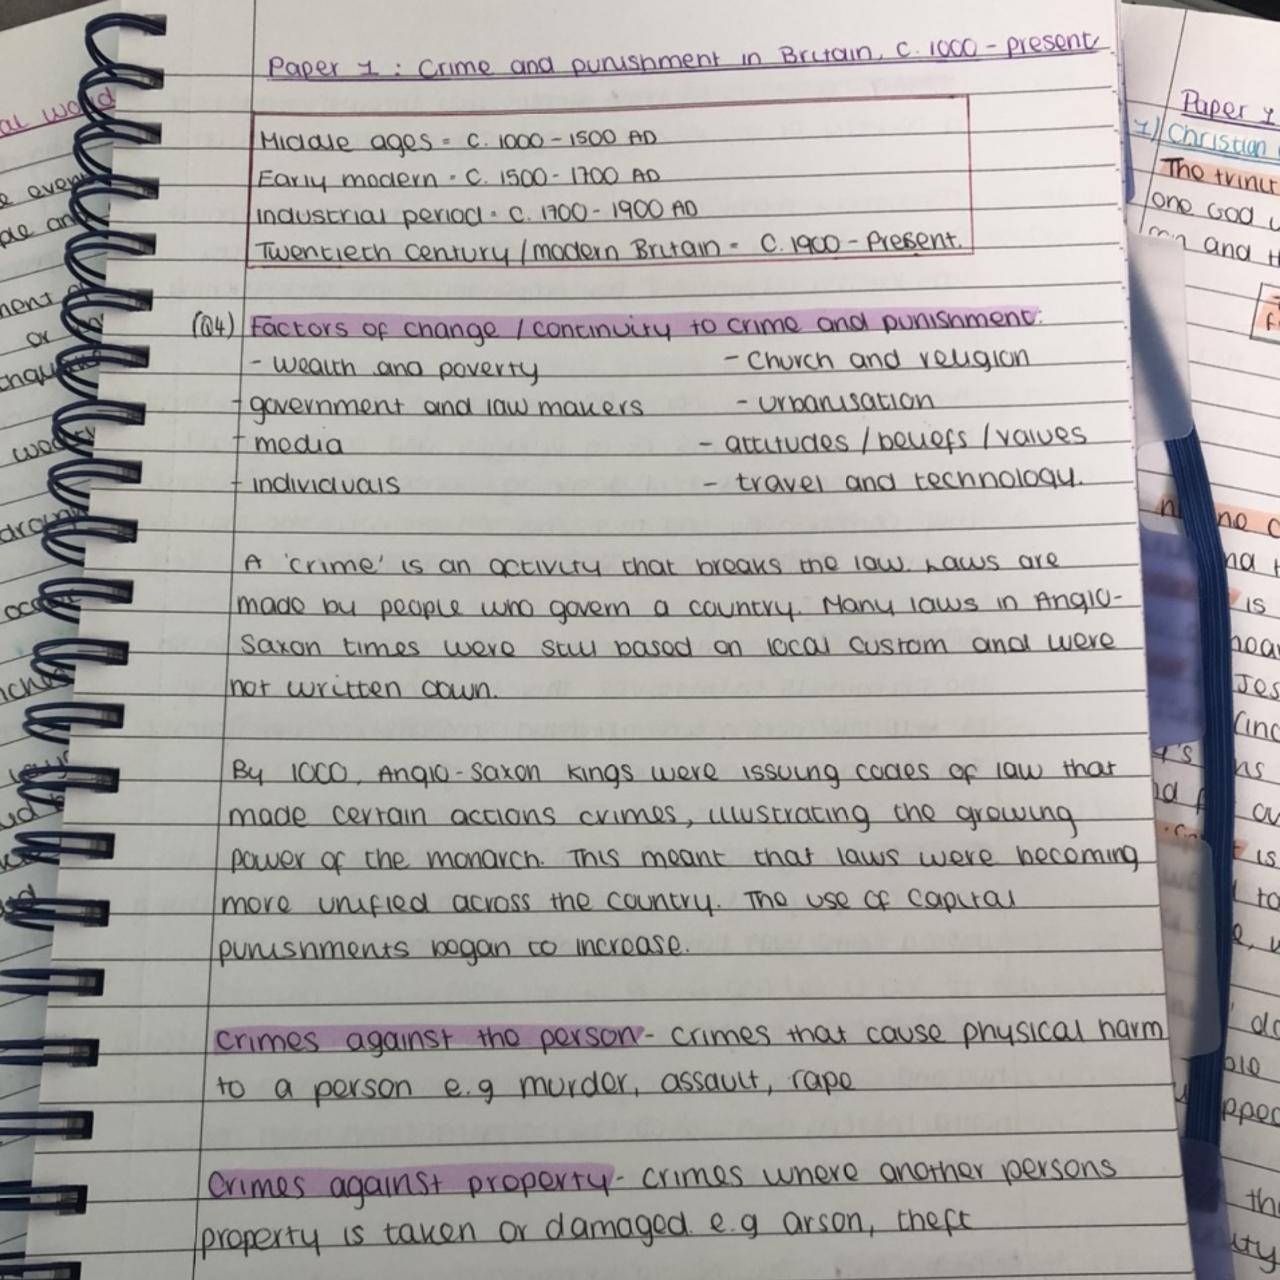 Paper 1 : Crime and punishment in Britain, c. 1000 - present
Middle ages = c. 1000 - 1500 AD
Early modern = c. 1500 - 1700 AD
Industrial period = c. 1700 - 1900 AD
Twentieth century / modern Britain = c. 1900 - Present.
(Q4) Factors of change / continuity to crime and punishment:
- wealth and poverty
- church and religion
- government and law makers
- urbanisation
- media
- attitudes / beliefs / values
- individuals
- travel and technology.
A 'crime' is an activity that breaks the law. Laws are
made by people who govern a country. Many laws in Anglo-
Saxon times were still based on local custom and were
not written down.
By 1000, Anglo-Saxon kings were issuing codes of law that
made certain actions crimes, illustrating the growing
power of the monarch. This meant that laws were becoming
more unified across the country. The use of capital
punishments began to increase.
Crimes against the person - crimes that cause physical harm
to a person e.g murder, assault, rape
Crimes against property - crimes where another persons
property is taken or damaged. e.g arson, theft
Paper 1
1) Christian
The
one God
and
is